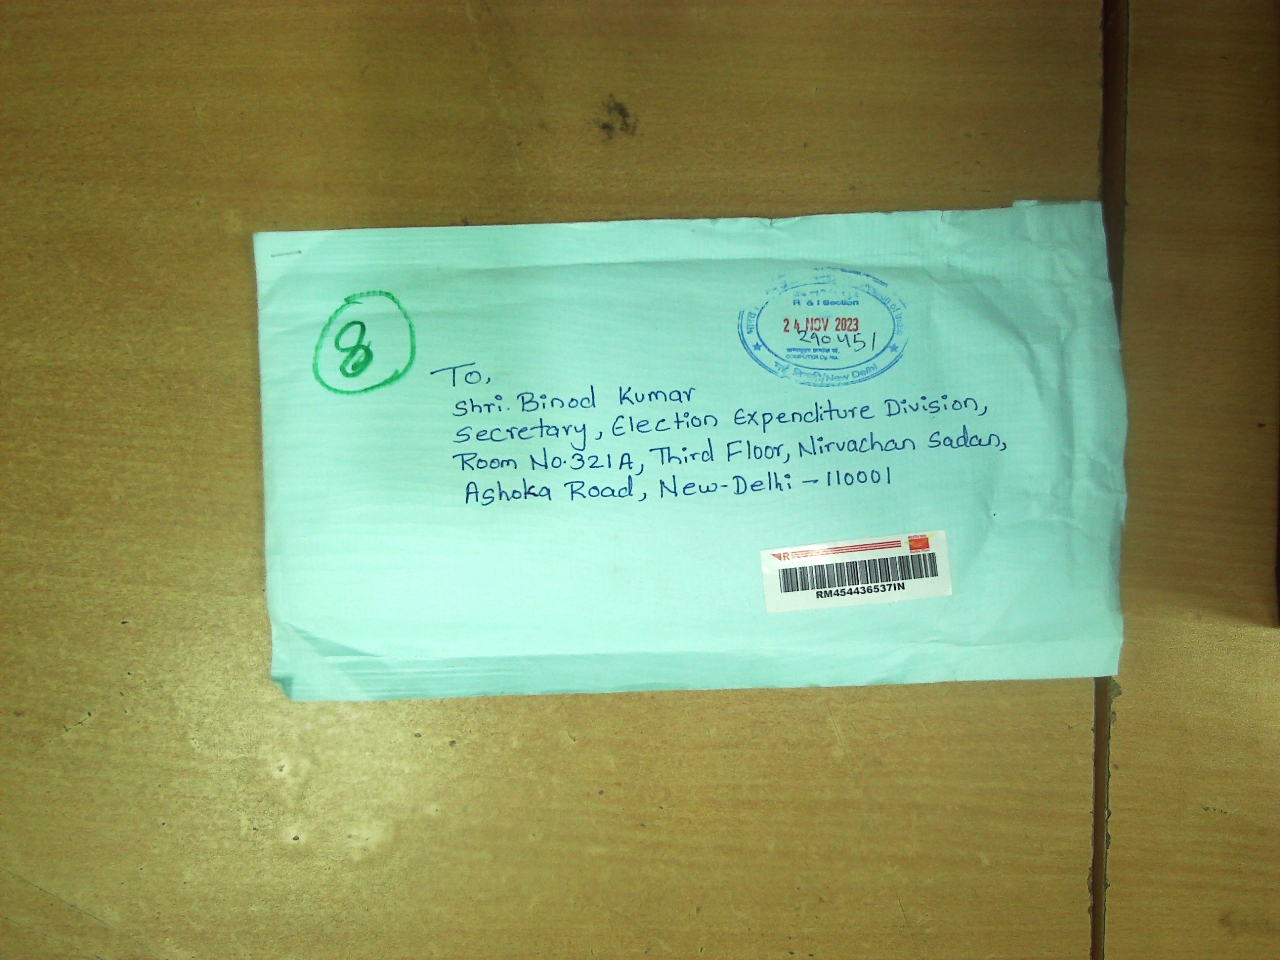 8
R & I Section
24 NOV 2023
290451
COMPUTER Dy. No.
नई दिल्ली/New Delhi
To,
Shri. Binod Kumar
Secretary, Election Expenditure Division,
Room No. 321A, Third Floor, Nirvachan Sadan,
Ashoka Road, New-Delhi - 110001
R
RM454436537IN